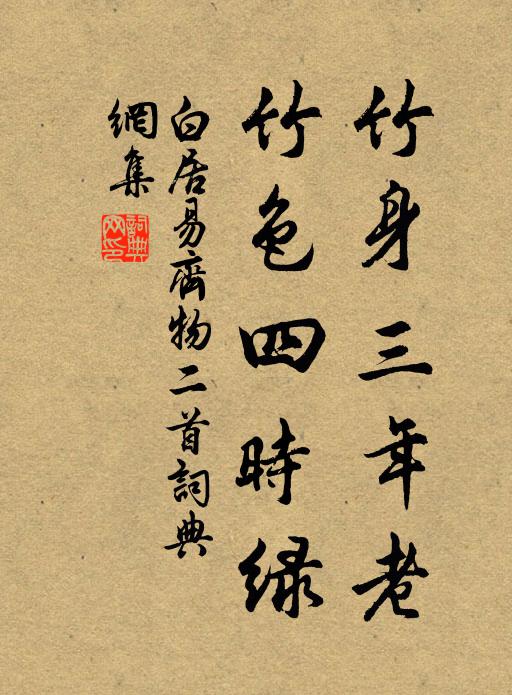 竹身三年老
竹色四時綠
白居易齊物二首詞典
網集
詞典
网印